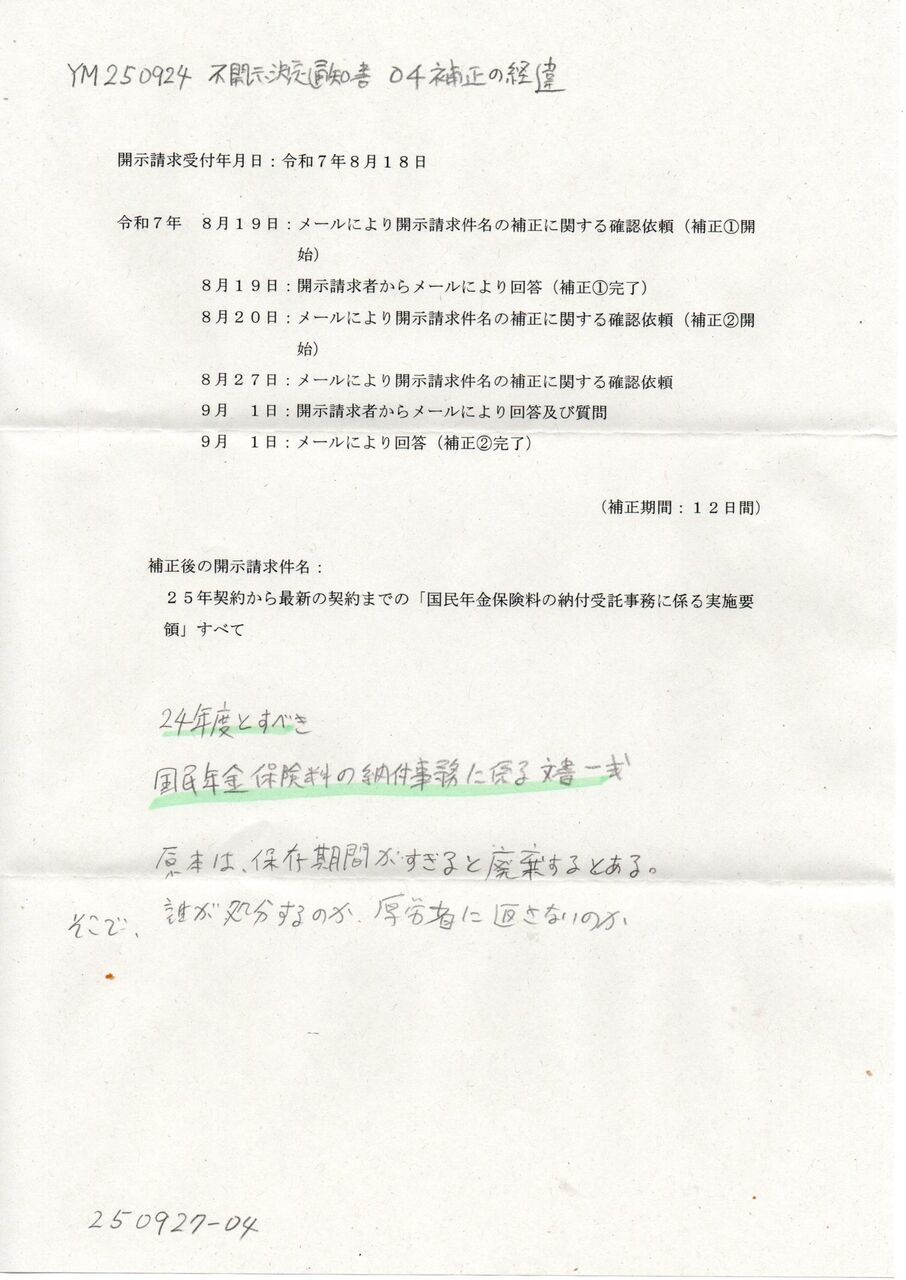 YM250924 不開示決定通知書 04補正の経違
開示請求受付年月日：令和７年８月１８日
令和７年　８月１９日：メールにより開示請求件名の補正に関する確認依頼（補正①開
始）
８月１９日：開示請求者からメールにより回答（補正①完了）
８月２０日：メールにより開示請求件名の補正に関する確認依頼（補正②開
始）
８月２７日：メールにより開示請求件名の補正に関する確認依頼
９月　１日：開示請求者からメールにより回答及び質問
９月　１日：メールにより回答（補正②完了）
（補正期間：１２日間）
補正後の開示請求件名：
２５年契約から最新の契約までの「国民年金保険料の納付受託事務に係る実施要
領」すべて
24年度とすべき
国民年金保険料の納付事務に係る文書一式
原本は、保存期間がすぎると廃棄するとある。
そこで、誰が処分するのか、厚労省に返さないのか
250927-04